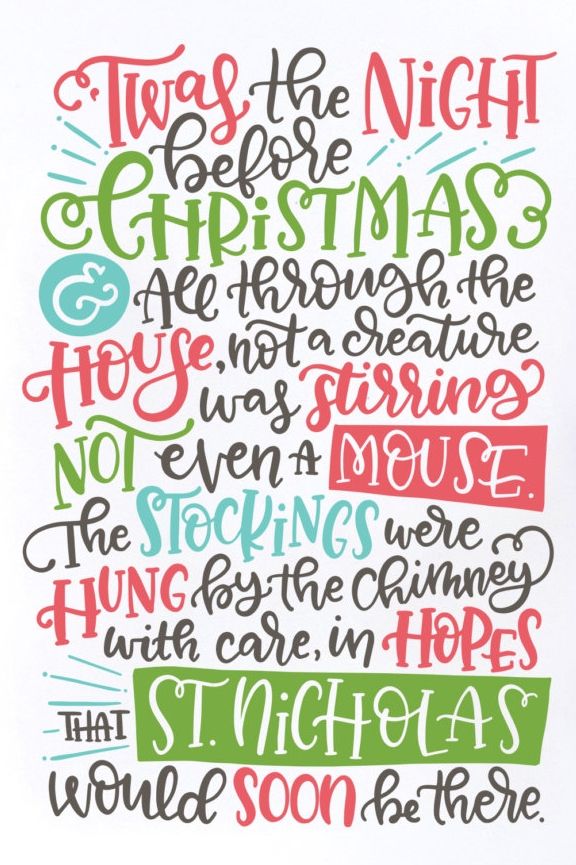 'Twas the NiGHT
before
CHRiSTMAS
& All through the
House, not a creature
was stirring
NOT even A MOUSE.
The STOCKiNGS were
HUNG by the chimney
with care, in HOPES
THAT ST. NiCHOLAS
would SOON be there.